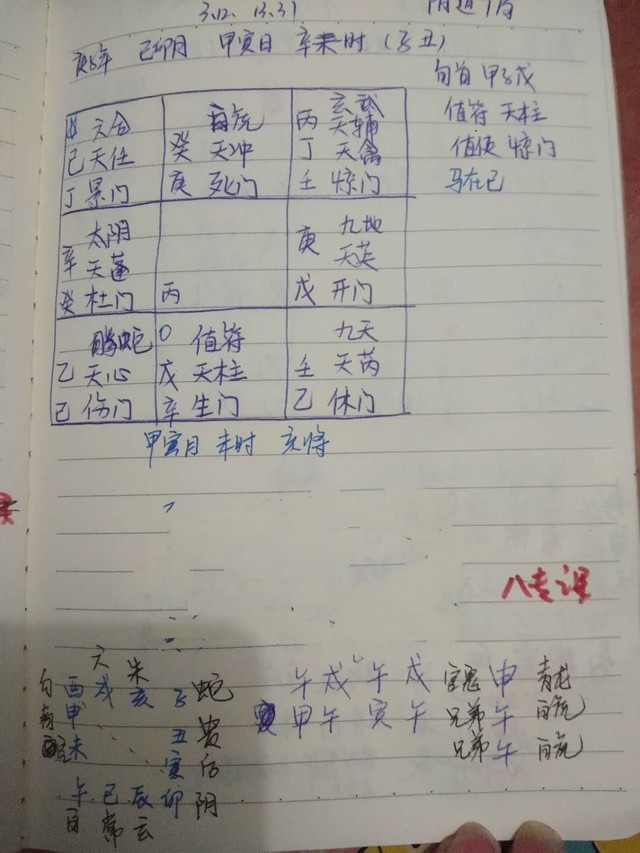 3.12. 13.31
年 己卯月 甲寅日 辛未时 (子丑)
旬首 甲子戊
值符 天柱
值使 惊门
马在巳
六合
己 天任
丁 景门
白虎
癸 天冲
庚 死门
丙 玄武
天辅
丁 天禽
壬 惊门
太阴
辛 天蓬
癸 杜门
丙
庚 九地
天英
戊 开门
螣蛇
乙 天心
己 伤门
O 值符
戊 天柱
辛 生门
九天
壬 天芮
乙 休门
甲寅日 未时 亥将
八专课
六 朱
勾 酉 戌 亥 子 蛇
甲 丑 贵
未 寅 后
午 巳 辰 卯 阴
常 玄
午 戌 午 戌
甲 午 寅 午
官鬼 申 青龙
兄弟 午 白虎
兄弟 午 白虎